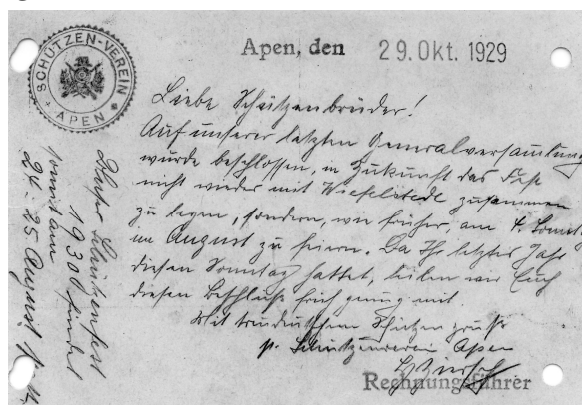 SCHÜTZEN-VEREIN
APEN
Apen, den 29. Okt. 1929
Liebe Schützenbrüder!
Auf unserer letzten Generalversammlung
wurde beschlossen, in Zukunft das Fest
nicht wieder mit Wiefelstede zusammen
zu legen, sondern, wie früher, am 4. Sonntag
im August zu feiern. Da Ihr letztes Jahr
diesen Sonntag hattet, teilen wir Euch
diesen Beschluß früh genug mit.
Mit treudeutschem Schützengruß
p. Schützenverein Apen
Rechnungsführer
Schützenfest
1930 findet
24. 25 August